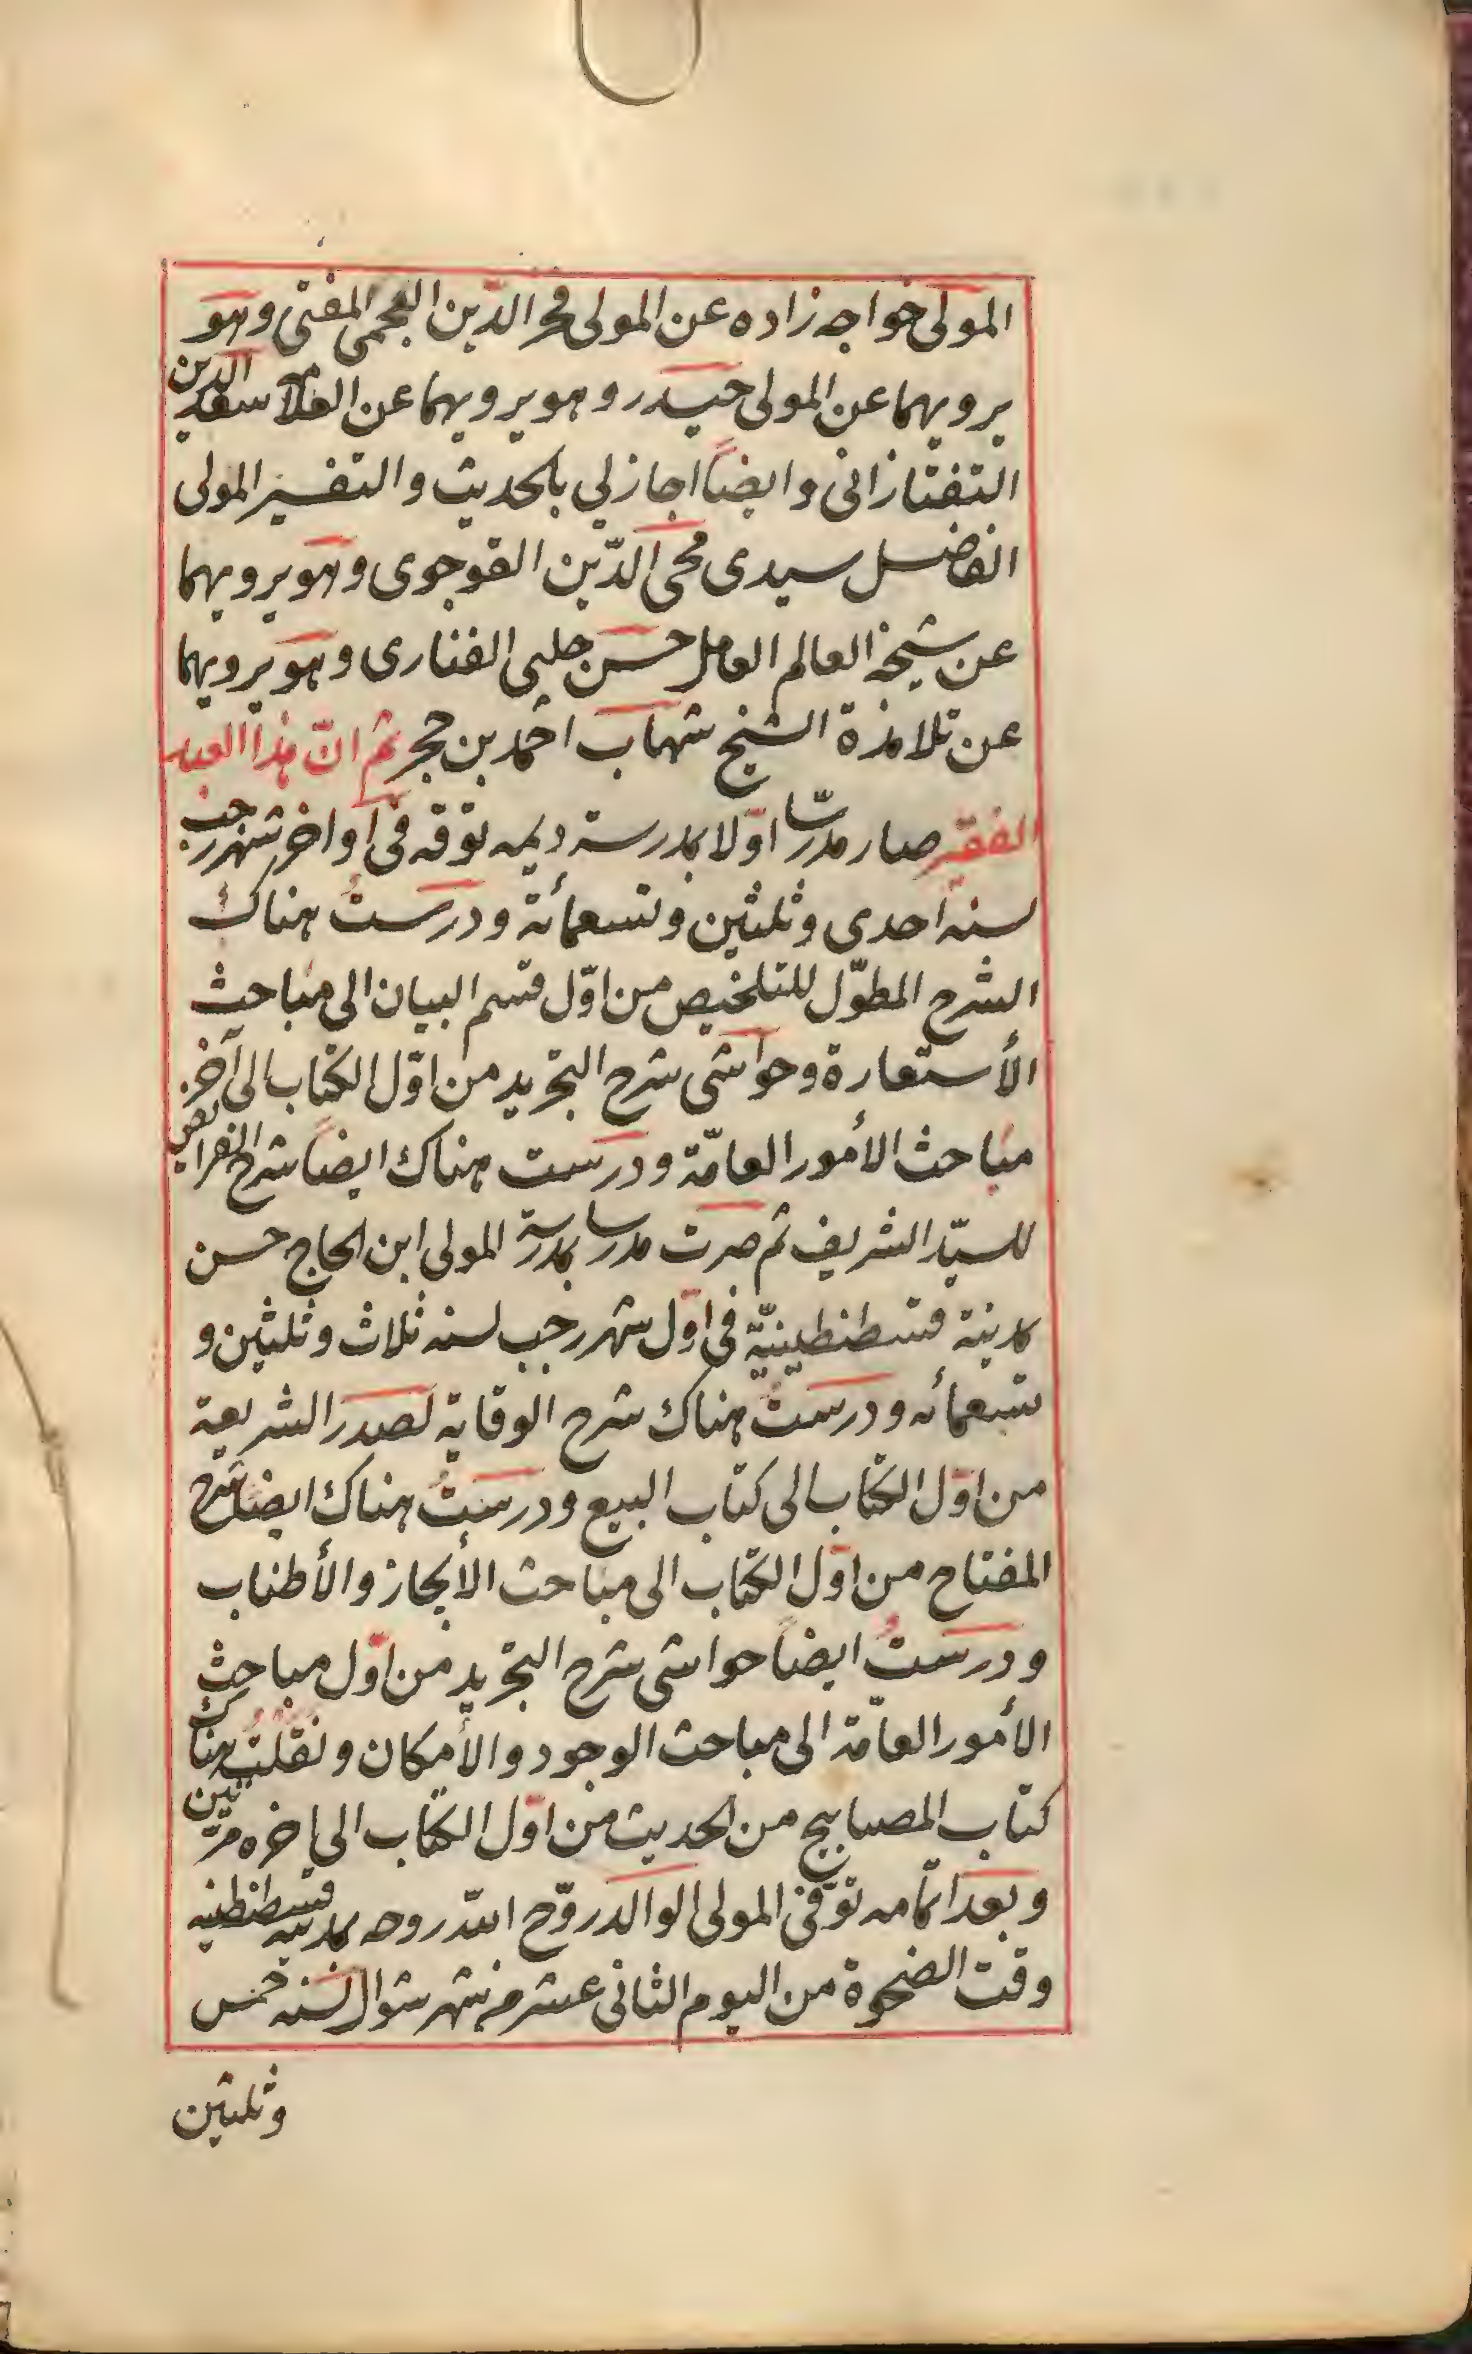 المولى خواجه زاده عن المولى فخر الدّين العجمى المفتى وهو
يرويهما عن المولى حيدر وهو يرويهما عن العلامة سعد الدين
التفتازانى وايضاً اجازلي بالحديث والتفسير المولى
الفاضل سيدى محى الدّين القوجوى وهو يرويهما
عن شيخه العالم العامل حسن جلبى الفنارى وهو يرويهما
عن تلامذة الشيخ شهاب احمد بن حجر ثم انّ هذا العبد
الفقير صار مدرّسا اوّلا بمدرسة ديمه توقه فى اواخر شهر رجب
لسنه احدى وثلثين وتسعمائة ودرستُ هناك
الشرح المطوّل للتلخيص من اوّل قسم البيان الى مباحث
الأستعارة وحواشى شرح التجريد من اوّل الكتاب الى آخر
مباحث الأمور العامّة ودرست هناك ايضاً شرح الفرائض
للسيّد الشريف ثم صرت مدرسا بمدرسة المولى ابن الحاج حسن
بمدينة قسطنطينيّة فى اوّل شهر رجب لسنه ثلاث وثلثين و
تسعمائه ودرستُ هناك شرح الوقاية لصدر الشريعة
من اوّل الكتاب الى كتاب البيع ودرستُ هناك ايضا شرح
المفتاح من اوّل الكتاب الى مباحث الأيجاز والأطناب
ودرستُ ايضاً حواشى شرح التجريد من اوّل مباحث
الأمور العامّة الى مباحث الوجود والأمكان ونقلتُ هناك
كتاب المصابيح من الحديث من اوّل الكتاب الى اخره مرّتين
وبعد اتمامه توّفى المولى الوالد روّح الله روحه بمدينه قسطنطنيه
وقت الضحوة من اليوم الثانى عشر من شهر شوال لسنه خمس
وثلثين